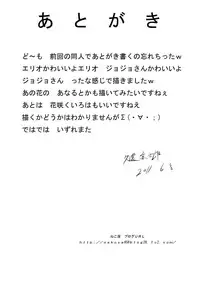 あとがき
ど～も　前回の同人であとがき書くの忘れちったｗ
エリオかわいいよエリオ　ジョジョさんかわいいよ
ジョジョさん　ったな感じで描きましたｗ
あの花の　あなるとかも描いてみたいですねぇ
あとは　花咲くいろはもいいですねえ
描くかどうかはわかりませんがΣ（・∀・；）
ではでは　いずれまた
2011